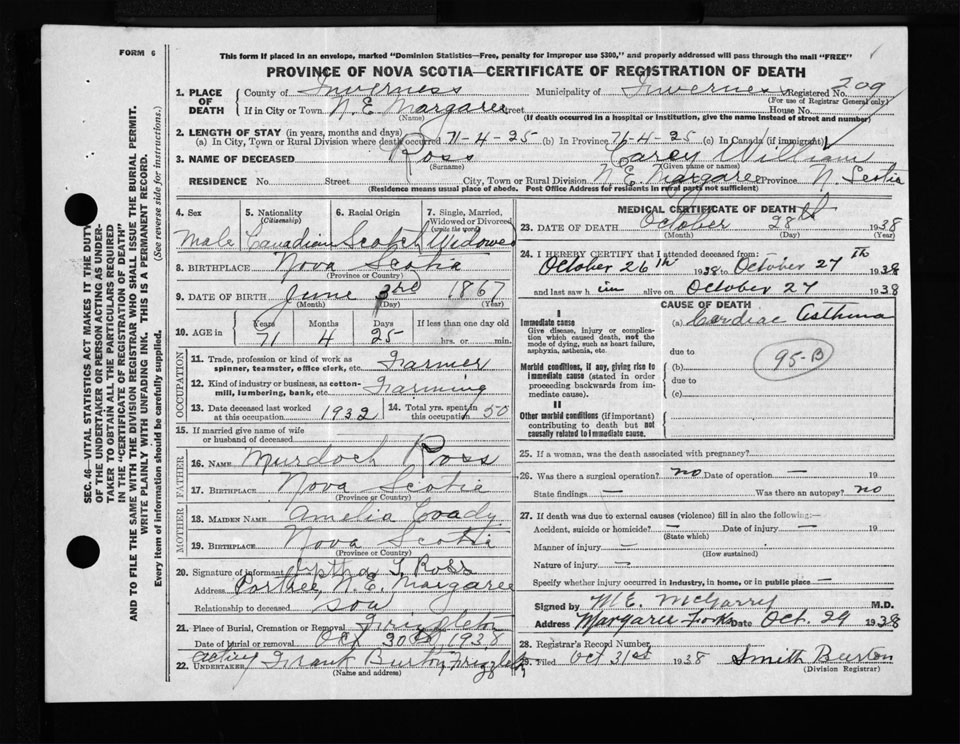 FORM 6
This form if placed in an envelope, marked "Dominion Statistics—Free, penalty for improper use $300," and properly addressed will pass through the mail "FREE"
PROVINCE OF NOVA SCOTIA—CERTIFICATE OF REGISTRATION OF DEATH
1. PLACE OF DEATH County of Inverness Municipality of Inverness Registered No. 209
(For use of Registrar General only)
If in City or Town N. E. Margaree Street House No.
(Name) (If death occurred in a hospital or institution, give the name instead of street and number)
2. LENGTH OF STAY (in years, months and days)
(a) In City, Town or Rural Division where death occurred 71-4-25 (b) In Province 71-4-25 (c) In Canada (if immigrant)
3. NAME OF DECEASED Ross Carey William
(Surname) (Given name or names)
RESIDENCE No. Street City, Town or Rural Division N. E. Margaree Province N. Scotia
(Residence means usual place of abode. Post Office Address for residents in rural parts not sufficient)
4. Sex 5. Nationality (Citizenship) 6. Racial Origin 7. Single, Married, Widowed or Divorced (write the word)
Male Canadian Scotch Widowed
8. BIRTHPLACE Nova Scotia
(Province or Country)
9. DATE OF BIRTH June 3rd 1867
(Month) (Day) (Year)
10. AGE in Years Months Days If less than one day old
71 4 25 hrs. or min.
OCCUPATION
11. Trade, profession or kind of work as spinner, teamster, office clerk, etc. Farmer
12. Kind of industry or business, as cotton-mill, lumbering, bank, etc. Farming
13. Date deceased last worked at this occupation 1932 14. Total yrs. spent in this occupation 50
15. If married give name of wife or husband of deceased
FATHER
16. NAME Murdoch Ross
17. BIRTHPLACE Nova Scotia
(Province or Country)
MOTHER
18. MAIDEN NAME Amelia Coady
19. BIRTHPLACE Nova Scotia
(Province or Country)
20. Signature of informant Ross
Address Portree, N. E. Margaree
Relationship to deceased son
21. Place of Burial, Cremation or Removal
Date of burial or removal Oct 30th, 1938
22. UNDERTAKER Acting Frank Burton, Frizzleton
(Name and address)
MEDICAL CERTIFICATE OF DEATH
23. DATE OF DEATH October 28th 1938
(Month) (Day) (Year)
24. I HEREBY CERTIFY that I attended deceased from:
October 26th 1938 to October 27th 1938
and last saw him alive on October 27 1938
CAUSE OF DEATH
I
Immediate cause (a) Cardiac Asthma
Give disease, injury or complication which caused death, not the mode of dying, such as heart failure, asphyxia, asthenia, etc.
due to
95-B
Morbid conditions, if any, giving rise to immediate cause (stated in order proceeding backwards from immediate cause). (b)
due to
(c)
II
Other morbid conditions (if important) contributing to death but not causally related to immediate cause.
25. If a woman, was the death associated with pregnancy?
26. Was there a surgical operation? no Date of operation — 19
State findings — Was there an autopsy? no
27. If death was due to external causes (violence) fill in also the following:—
Accident, suicide or homicide? — Date of injury — 19
(State which)
Manner of injury —
(How sustained)
Nature of injury —
Specify whether injury occurred in industry, in home, or in public place —
Signed by M. E. McGarry M.D.
Address Margaree Forks Date Oct. 29 1938
28. Registrar's Record Number
29. Filed Oct 31st 1938 Smith Burton
(Division Registrar)
SEC. 46—VITAL STATISTICS ACT MAKES IT THE DUTY
OF THE UNDERTAKER OR PERSON ACTING AS UNDER-
TAKER TO OBTAIN ALL THE PARTICULARS REQUIRED
IN THE "CERTIFICATE OF REGISTRATION OF DEATH"
AND TO FILE THE SAME WITH THE DIVISION REGISTRAR WHO SHALL ISSUE THE BURIAL PERMIT.
WRITE PLAINLY WITH UNFADING INK. THIS IS A PERMANENT RECORD.
Every item of information should be carefully supplied. (See reverse side for instructions.)